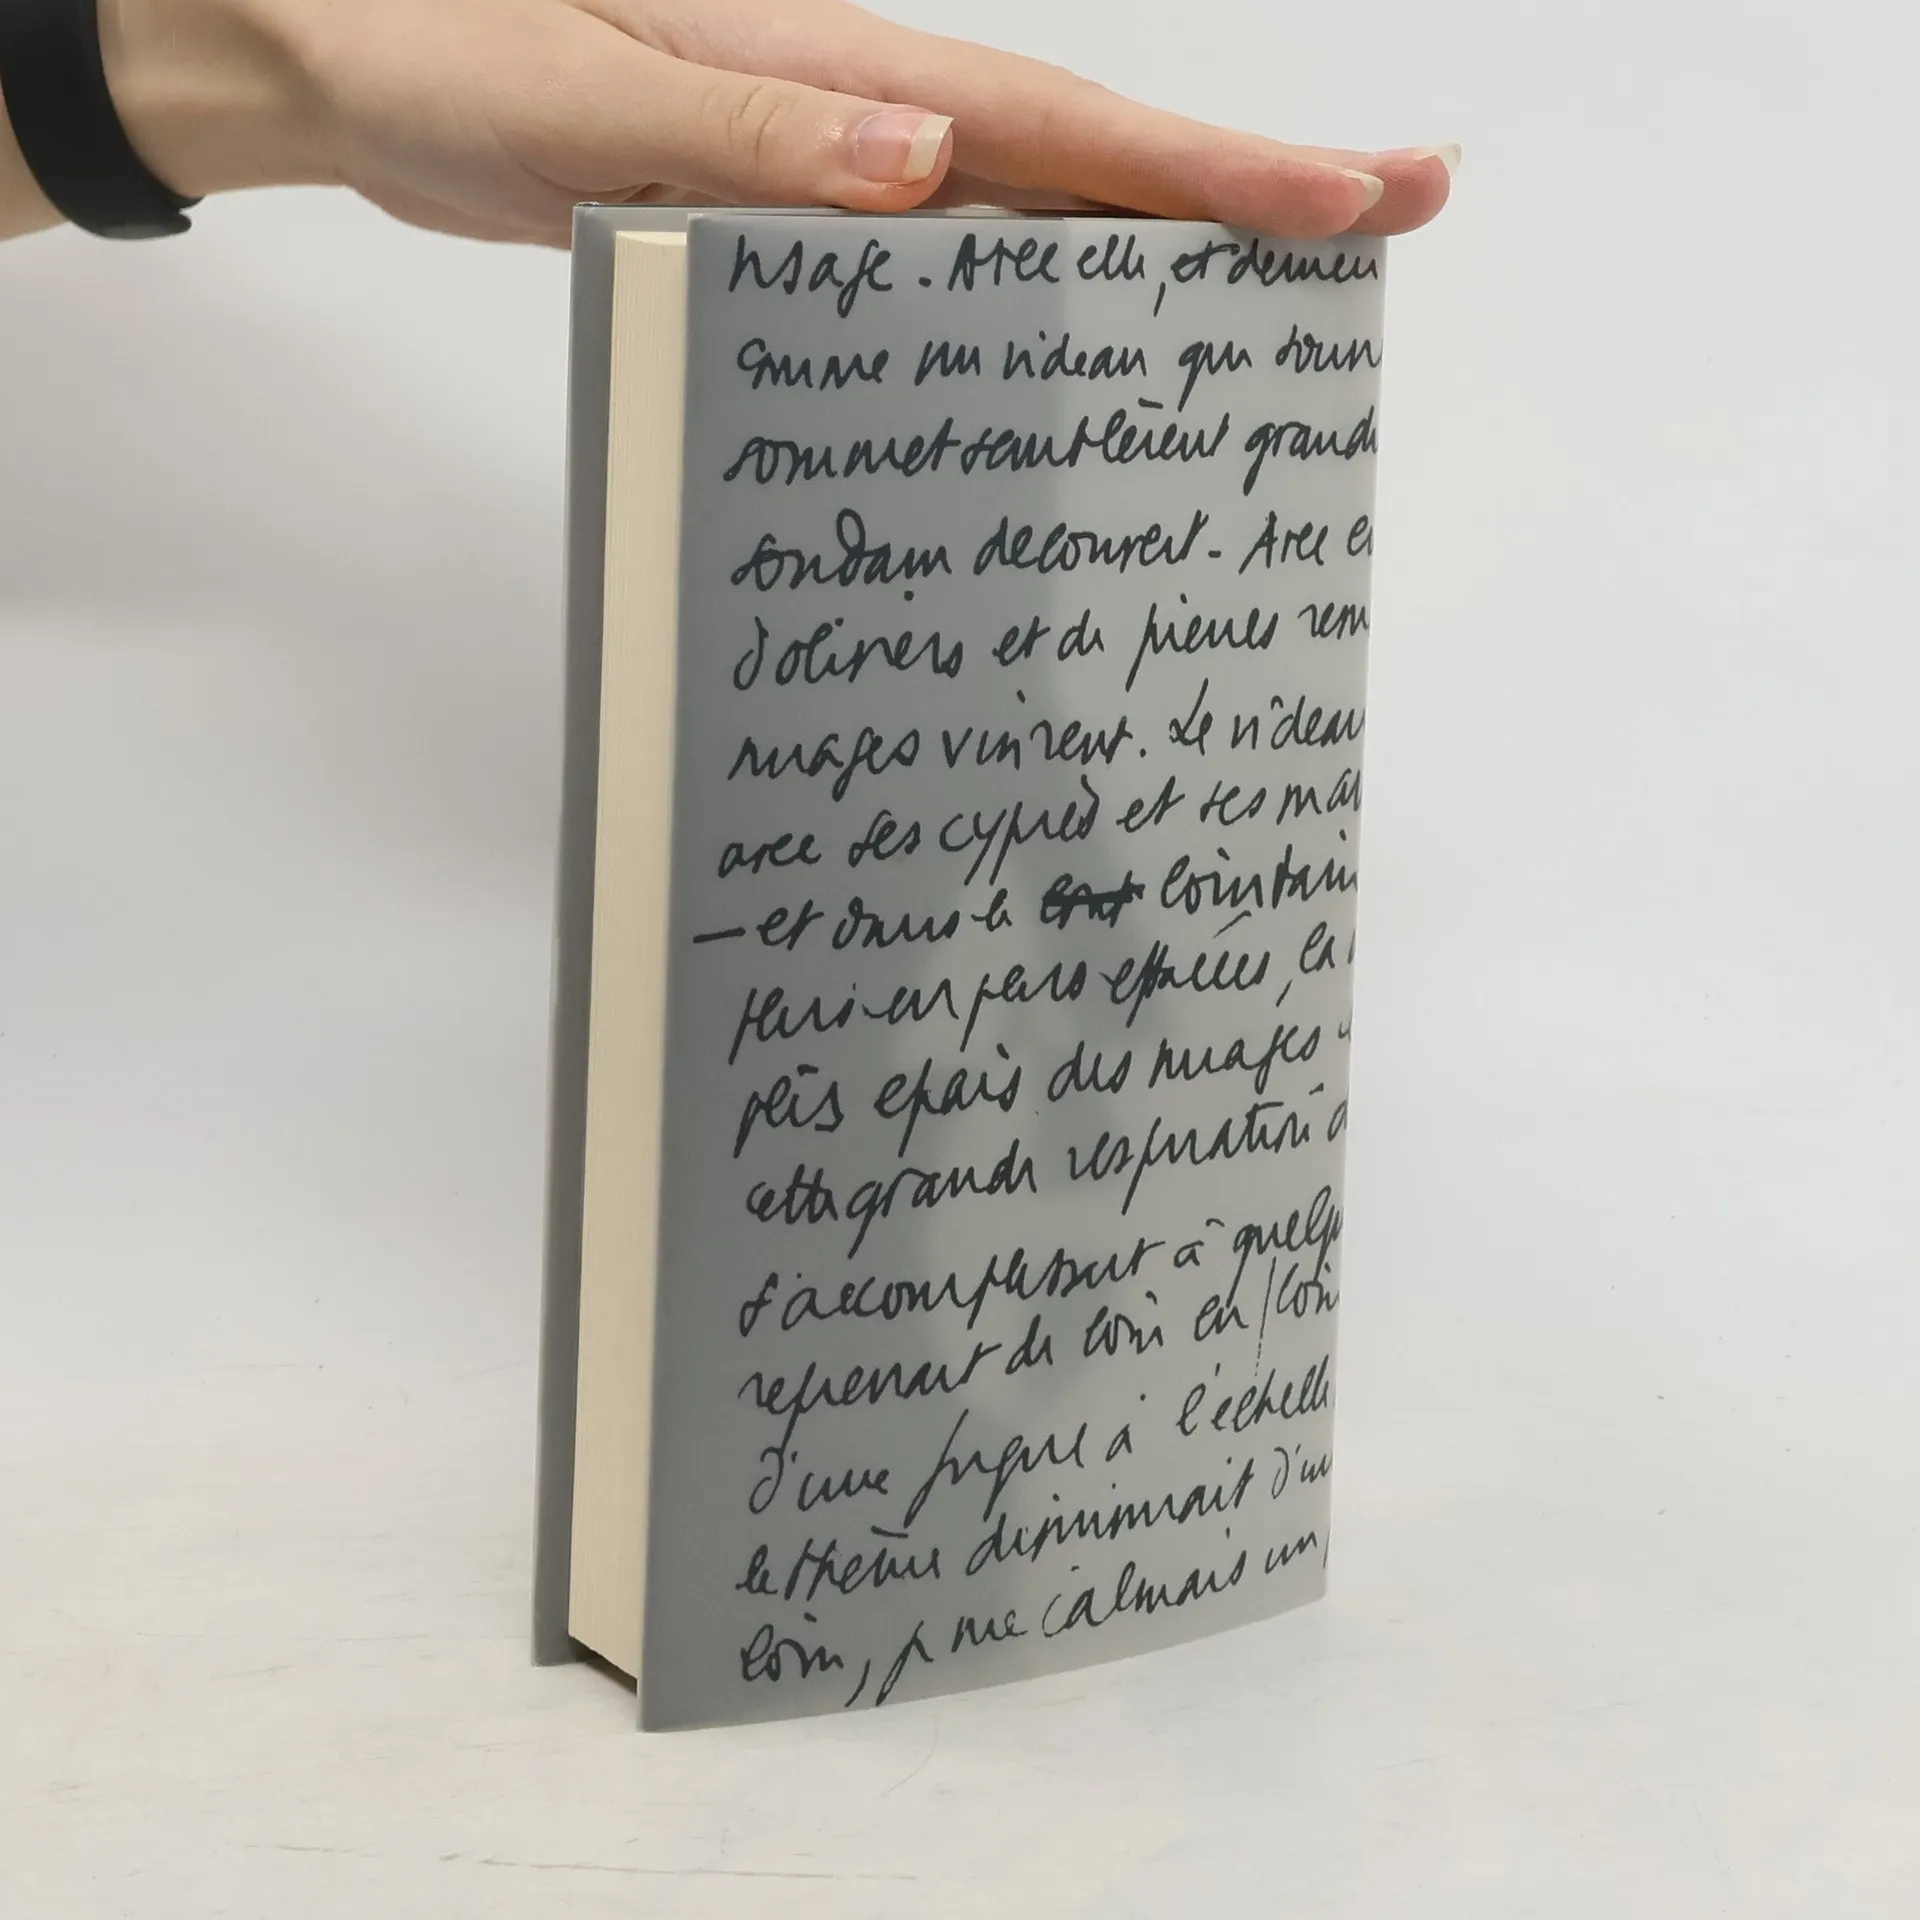 visage. Avec elle, et
comme un rideau qui tourn
sommet semblèrent grandi
soudain découvert. Avec e
d'oliviers et de pierres
nuages vinrent. Le rideau
avec ses cyprès et ses ma
— et dans le lointain
plus en plus espacées, la
plis épais des nuages
cette grande respiration d
s'accomplissait à quelqu
reprenait de loin en loin
d'une fugue à l'échelle
le thème diminuait d'un
loin, je me calmais un